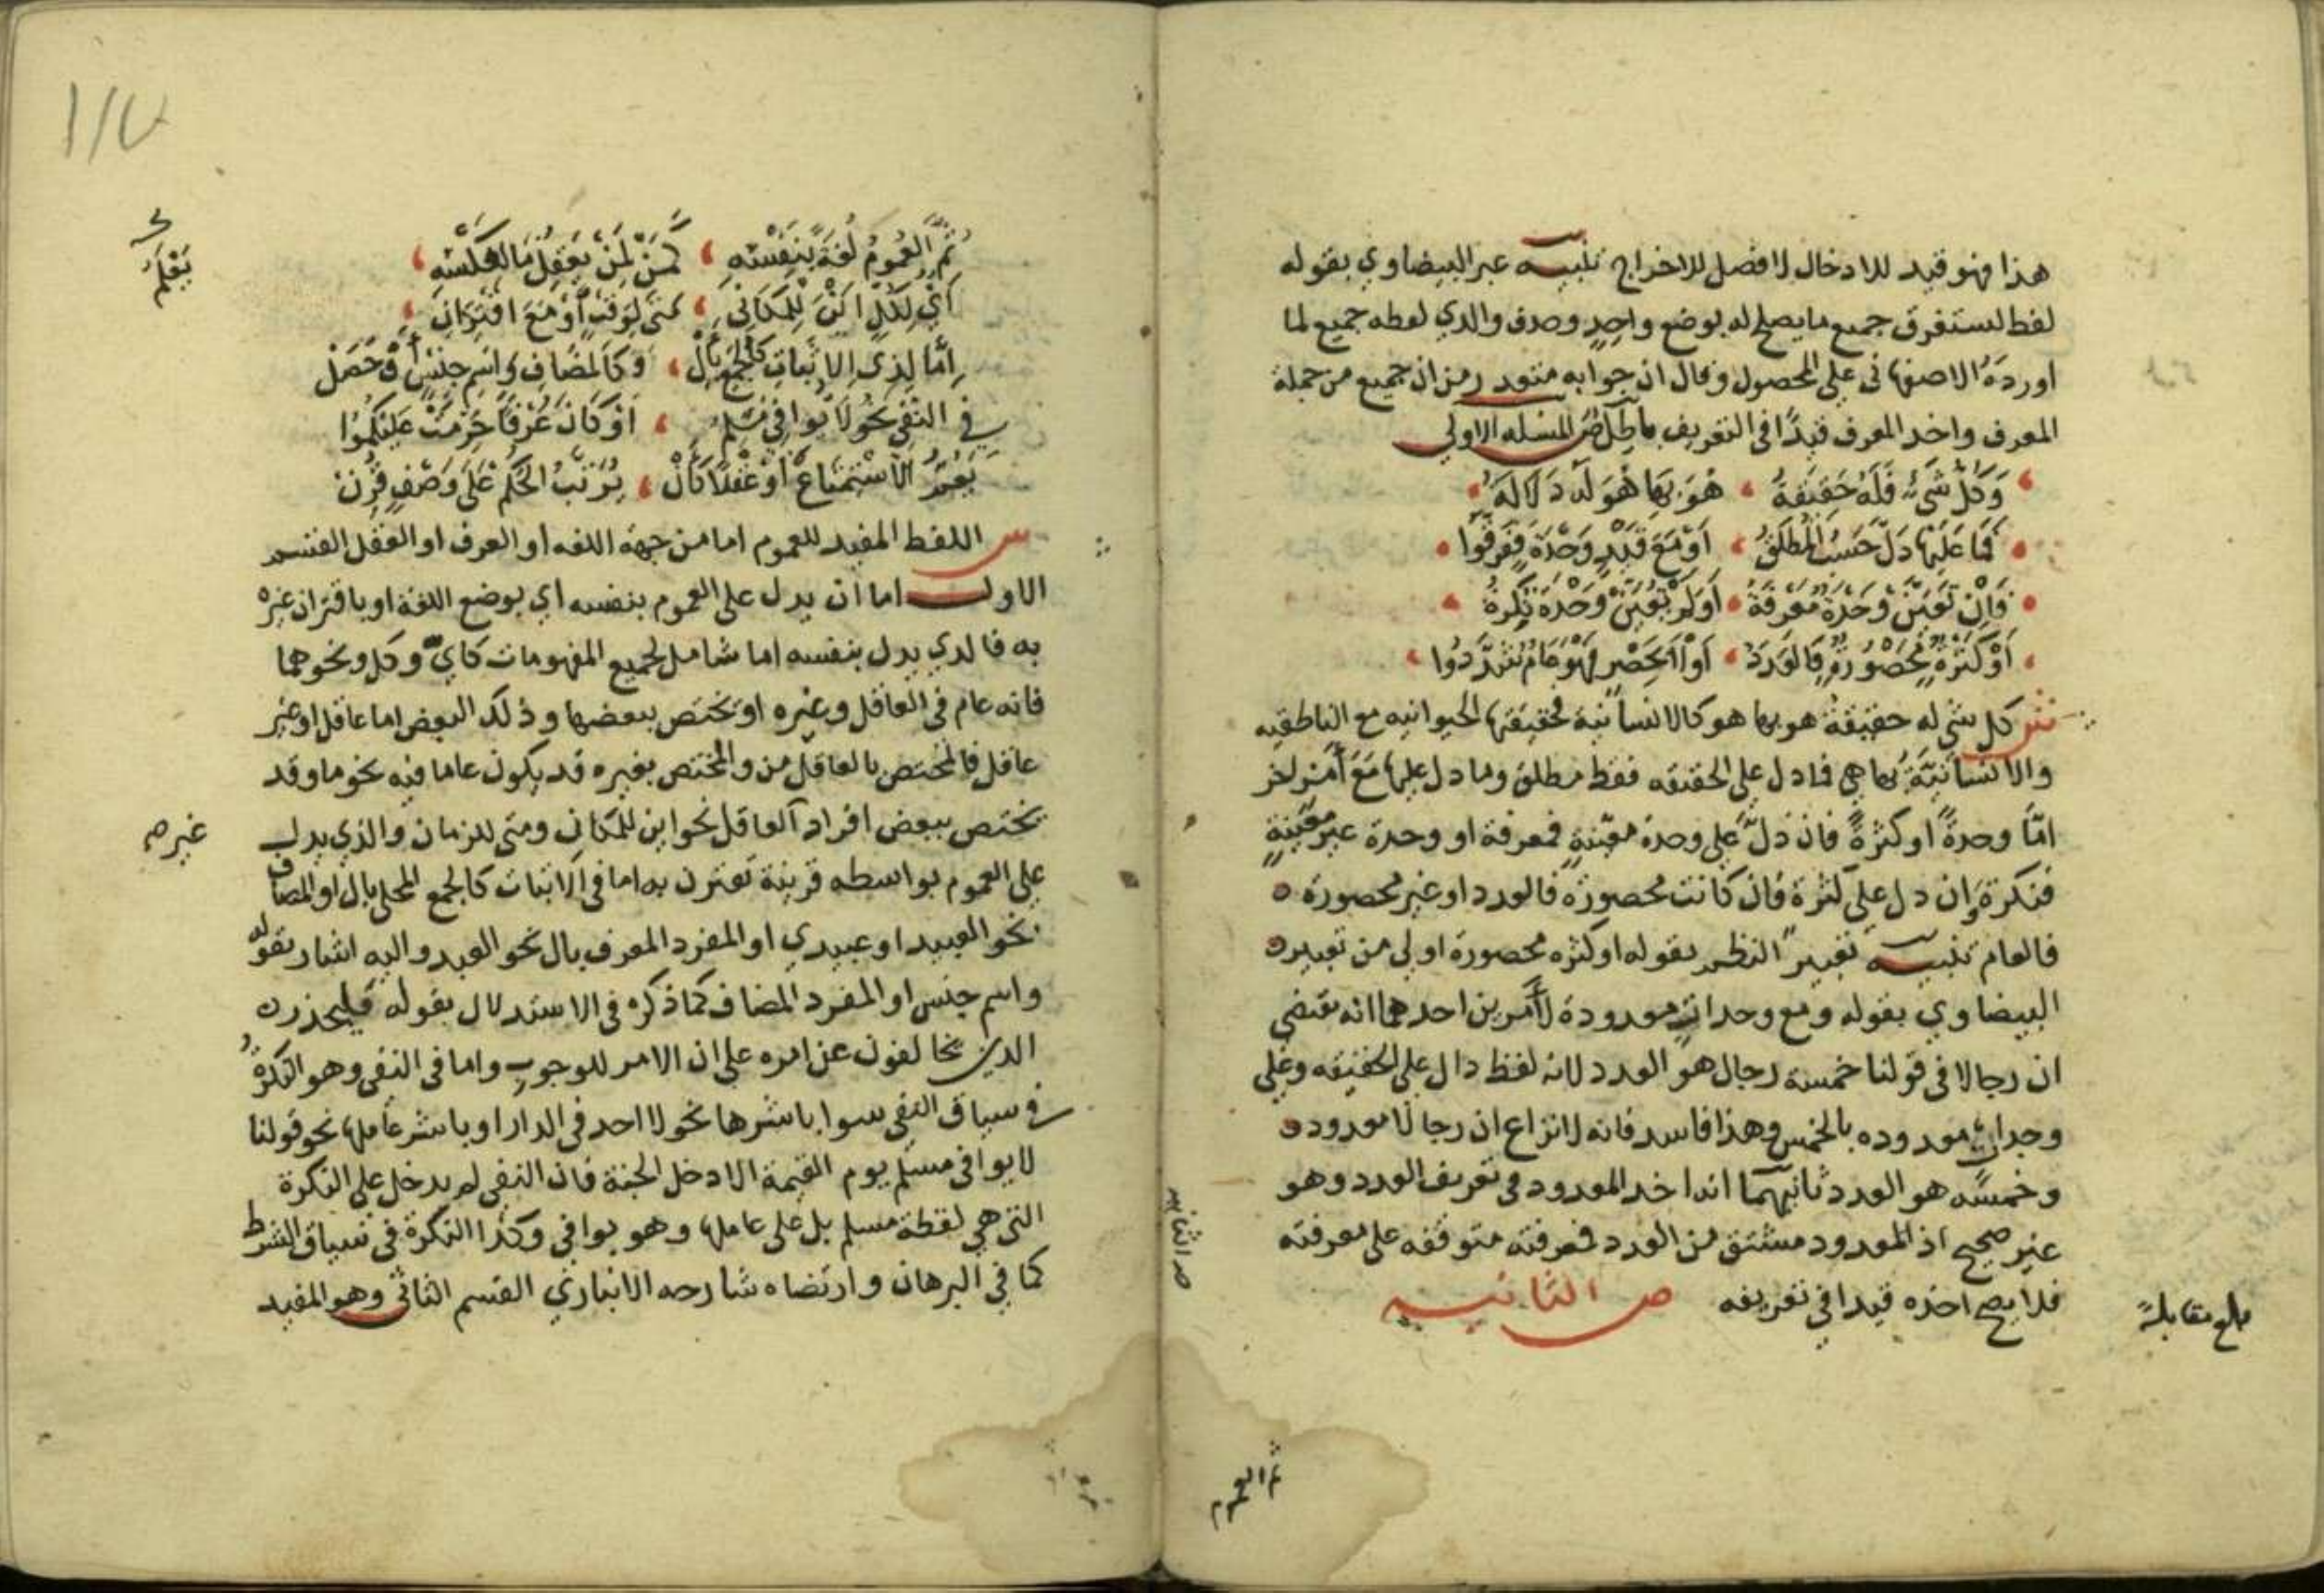 هذا فهو قيد للادخال لا فصل للاخراج تنبيه عبر البيضاوي بقوله
لفظ يستغرق جميع ما يصلح له بوضع واحد وحذف والدي لفظه جميع لما
اورده الاصفهاني على المحصول وقال ان جوابه متعذر من ان جميع من جملة
المعرف واخذ المعرف قيدًا في التعريف باطل ص المسله الاولي
وكل شيء فله حقيقة هو بها هو له دلاله
فما عليها دل حسب المطلق او مع قيد وحدة ففرقوا
فان تعين وحدة معرفة او لم تعين وحدة نكرة
او كثرة محصورة فالعدد او لا تحصر فهو عام تشردوا
ش كل شي له حقيقة هو بها هو كالانسانية فحقيقتها الحيوانيه مع الناطقيه
والانسانية بها هي فما دل على الحقيقه فقط مطلق وما دل عليها مع أمر اخر
امّا وحدةً او كثرةً فان دلّ على وحدة معيّنةٍ فمعرفة او وحدة غير معينةٍ
فنكرة وان دل على كثرة فان كانت محصورة فالعدد او غير محصورة
فالعام تنبيه تعبير النظم بقوله او كثره محصورة اولي من تعبير
البيضاوي بقوله ومع وحداتٍ معدودة لأمرين احدهما انه يقتضي
ان رجالا في قولنا خمسة رجال هو العدد لانه لفظ دال على الحقيقه وعلي
وحدات معدوده بالخمس وهذا فاسد فانه لا نزاع ان رجالا معدود
وخمسه هو العدد ثانيهما انه اخذ المعدود في تعريف العدد وهو
غير صحيح اذ المعدود مشتق من العدد فمعرفته متوقفه على معرفته
فلا يصح اخذه قيدا في تعريفه ص الثانيه
بلغ مقابلةً
ثم العموم
ص الثانيه
١١٧
ثم العموم لغة بنفسه كمن لمن يعقل ما لعكسه
يعلم
أي لكل اين للمكاني متى لوقت أو مع اقتران
إمّا لذي الاثبات كالجمع بأل وكالمضاف واسم جنس أو حصل
في النفي نحو لا يوافي مسلم او كان عرفًا حرمت عليكموا
يعم الاستمتاع أو عقلا كأن يرتب الحكم على وصف قرن
ش اللفظ المفيد للعموم اما من جهة اللغه او العرف او العقل القسم
الاول اما ان يدل على العموم بنفسه اي بوضع اللغة او باقتران غيره
به فالدي يدل بنفسه اما شامل لجميع المفهومات كاي وكل ونحوهما
فانه عام في العاقل وغيره او يختص ببعضها وذلك البعض اما عاقل او غير
عاقل فالمختص بالعاقل من والمختص بغيره قد يكون عاما فيه نحو ما وقد
يختص ببعض افراد العاقل نحو اين للمكان ومتى للزمان والذي يدل
غيره
على العموم بواسطه قرينة تقترن به اما في الاثبات كالجمع المحلى بال او المضاف
نحو العبيد او عبيدي او المفرد المعرف بال نحو العبد واليه اشار بقوله
واسم جنس او المفرد المضاف كما ذكره في الاستدلال بقوله فليحذر
الدين يخالفون عن امره على ان الامر للوجوب واما في النفي وهو النكرة
في سياق النفي سوا باشرها نحو لا احد في الدار او باشر عاملها نحو قولنا
لا يوافي مسلم يوم القيمة الا دخل الجنة فان النفي لم يدخل على النكرة
التي هي لفظة مسلم بل على عاملها وهو يوافي وكذا النكرة في سياق الشرط
كما في البرهان وارتضاه شارحه الانباري القسم الثاني وهو المفيد